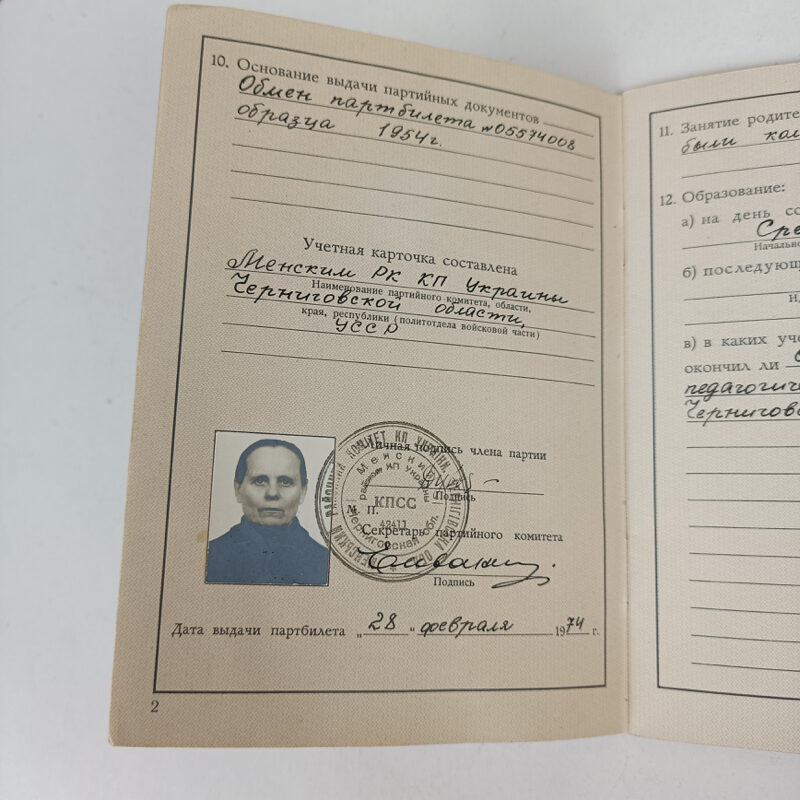 10. Основание выдачи партийных документов
Обмен партбилета №05574008
образца 1954г.
Учетная карточка составлена
Менским РК КП Украины
Наименование партийного комитета, области,
Черниговской области,
края, республики (политотдела войсковой части)
УССР
Личная подпись члена партии
Подпись
М. П.
КПСС
42411
Секретарь партийного комитета
Подпись
Дата выдачи партбилета „28“ февраля 1974 г.
2
11. Занятие родите
были кол
12. Образование:
а) на день со
Сре
Начально
б) последующ
в) в каких уче
окончил ли
педагогиче
Черниговс